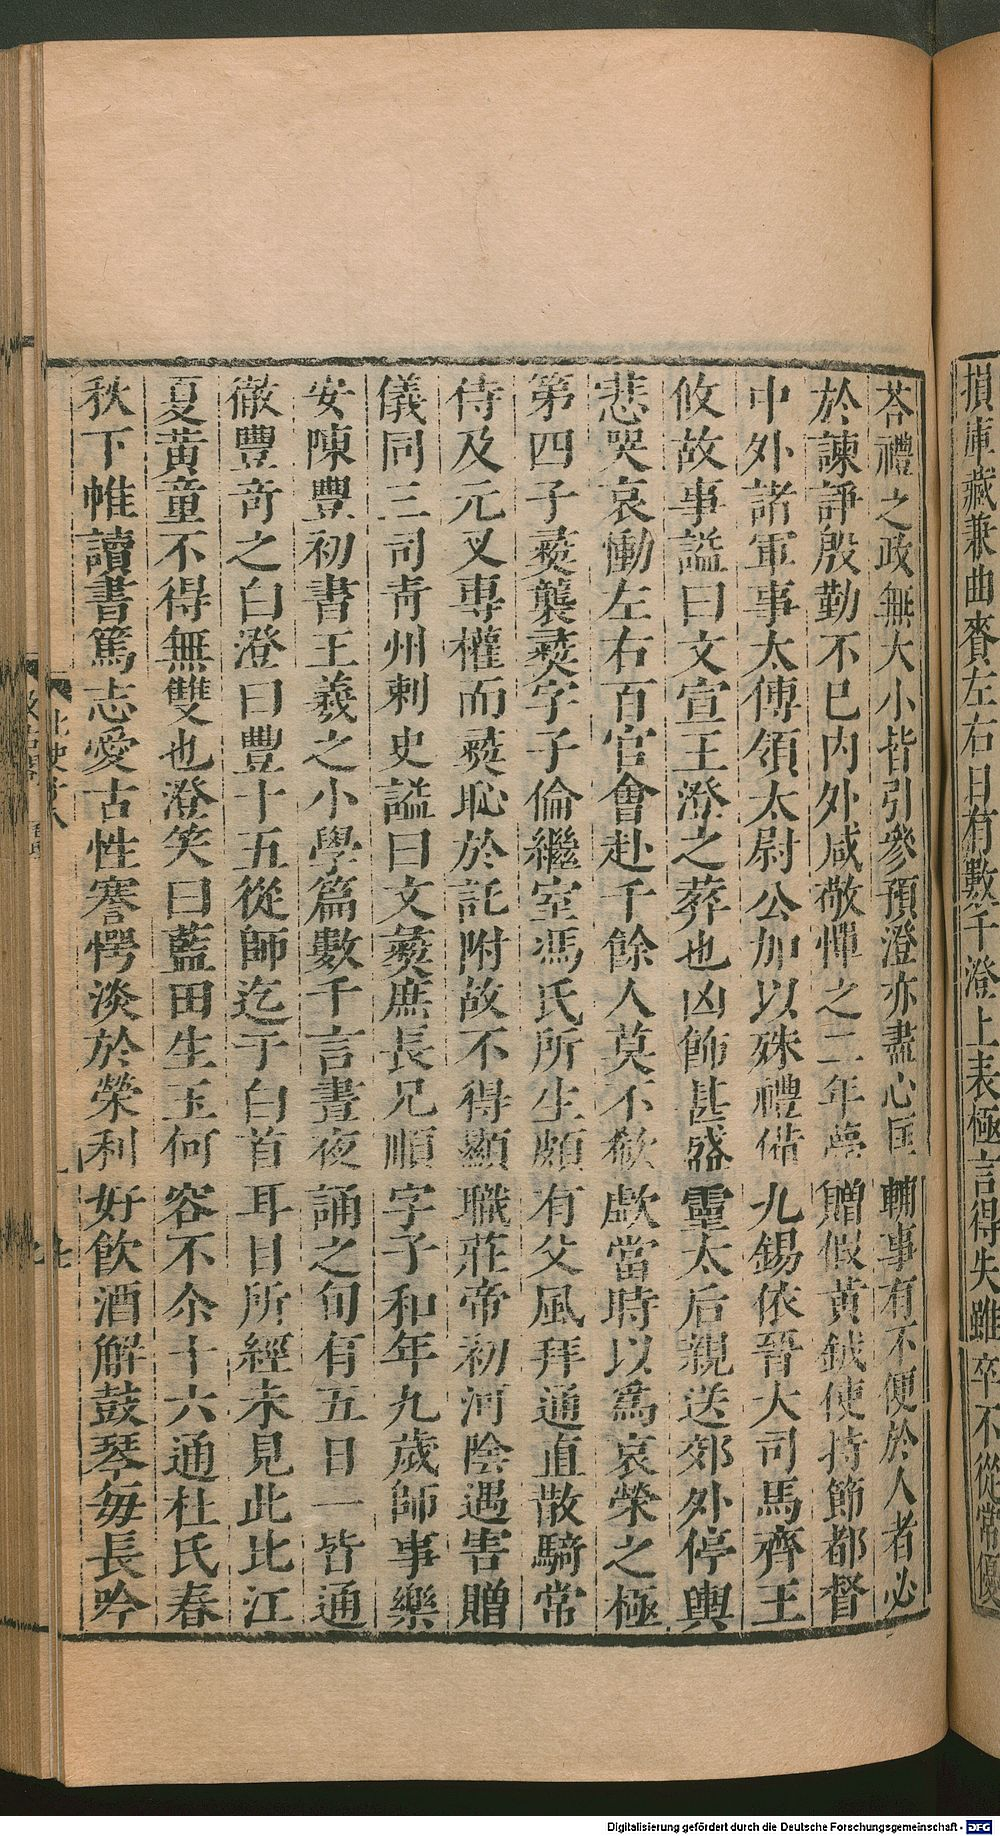 損庫藏兼曲賚左右日有數千澄上表極言得失雖卒不從常優
荅禮之政無大小皆引參預澄亦盡心匡輔事有不便於人者必
於諫諍殷勤不已内外咸敬憚之二年薨贈假黄鉞使持節都督
中外諸軍事太傅領太尉公加以殊禮備九錫依晉大司馬齊王
攸故事謚曰文宣王澄之葬也凶飾甚盛靈太后親送郊外停輿
悲哭哀慟左右百官會赴千餘人莫不欷歔當時以爲哀榮之極
第四子彛襲彛字子倫繼室馮氏所生頗有父風拜通直散騎常
侍及元叉專權而彛恥於託附故不得顯職莊帝初河陰遇害贈
儀同三司青州刺史謚曰文彛庶長兄順字子和年九歲師事樂
安陳豐初書王羲之小學篇數千言晝夜誦之旬有五日一皆通
徹豐奇之白澄曰豐十五從師迄于白首耳目所經未見此比江
夏黄童不得無雙也澄笑曰藍田生玉何容不尒十六通杜氏春
秋下帷讀書篤志愛古性謇愕淡於榮利好飲酒解鼓琴每長吟
北史
Digitalisierung gefördert durch die Deutsche Forschungsgemeinschaft - DFG